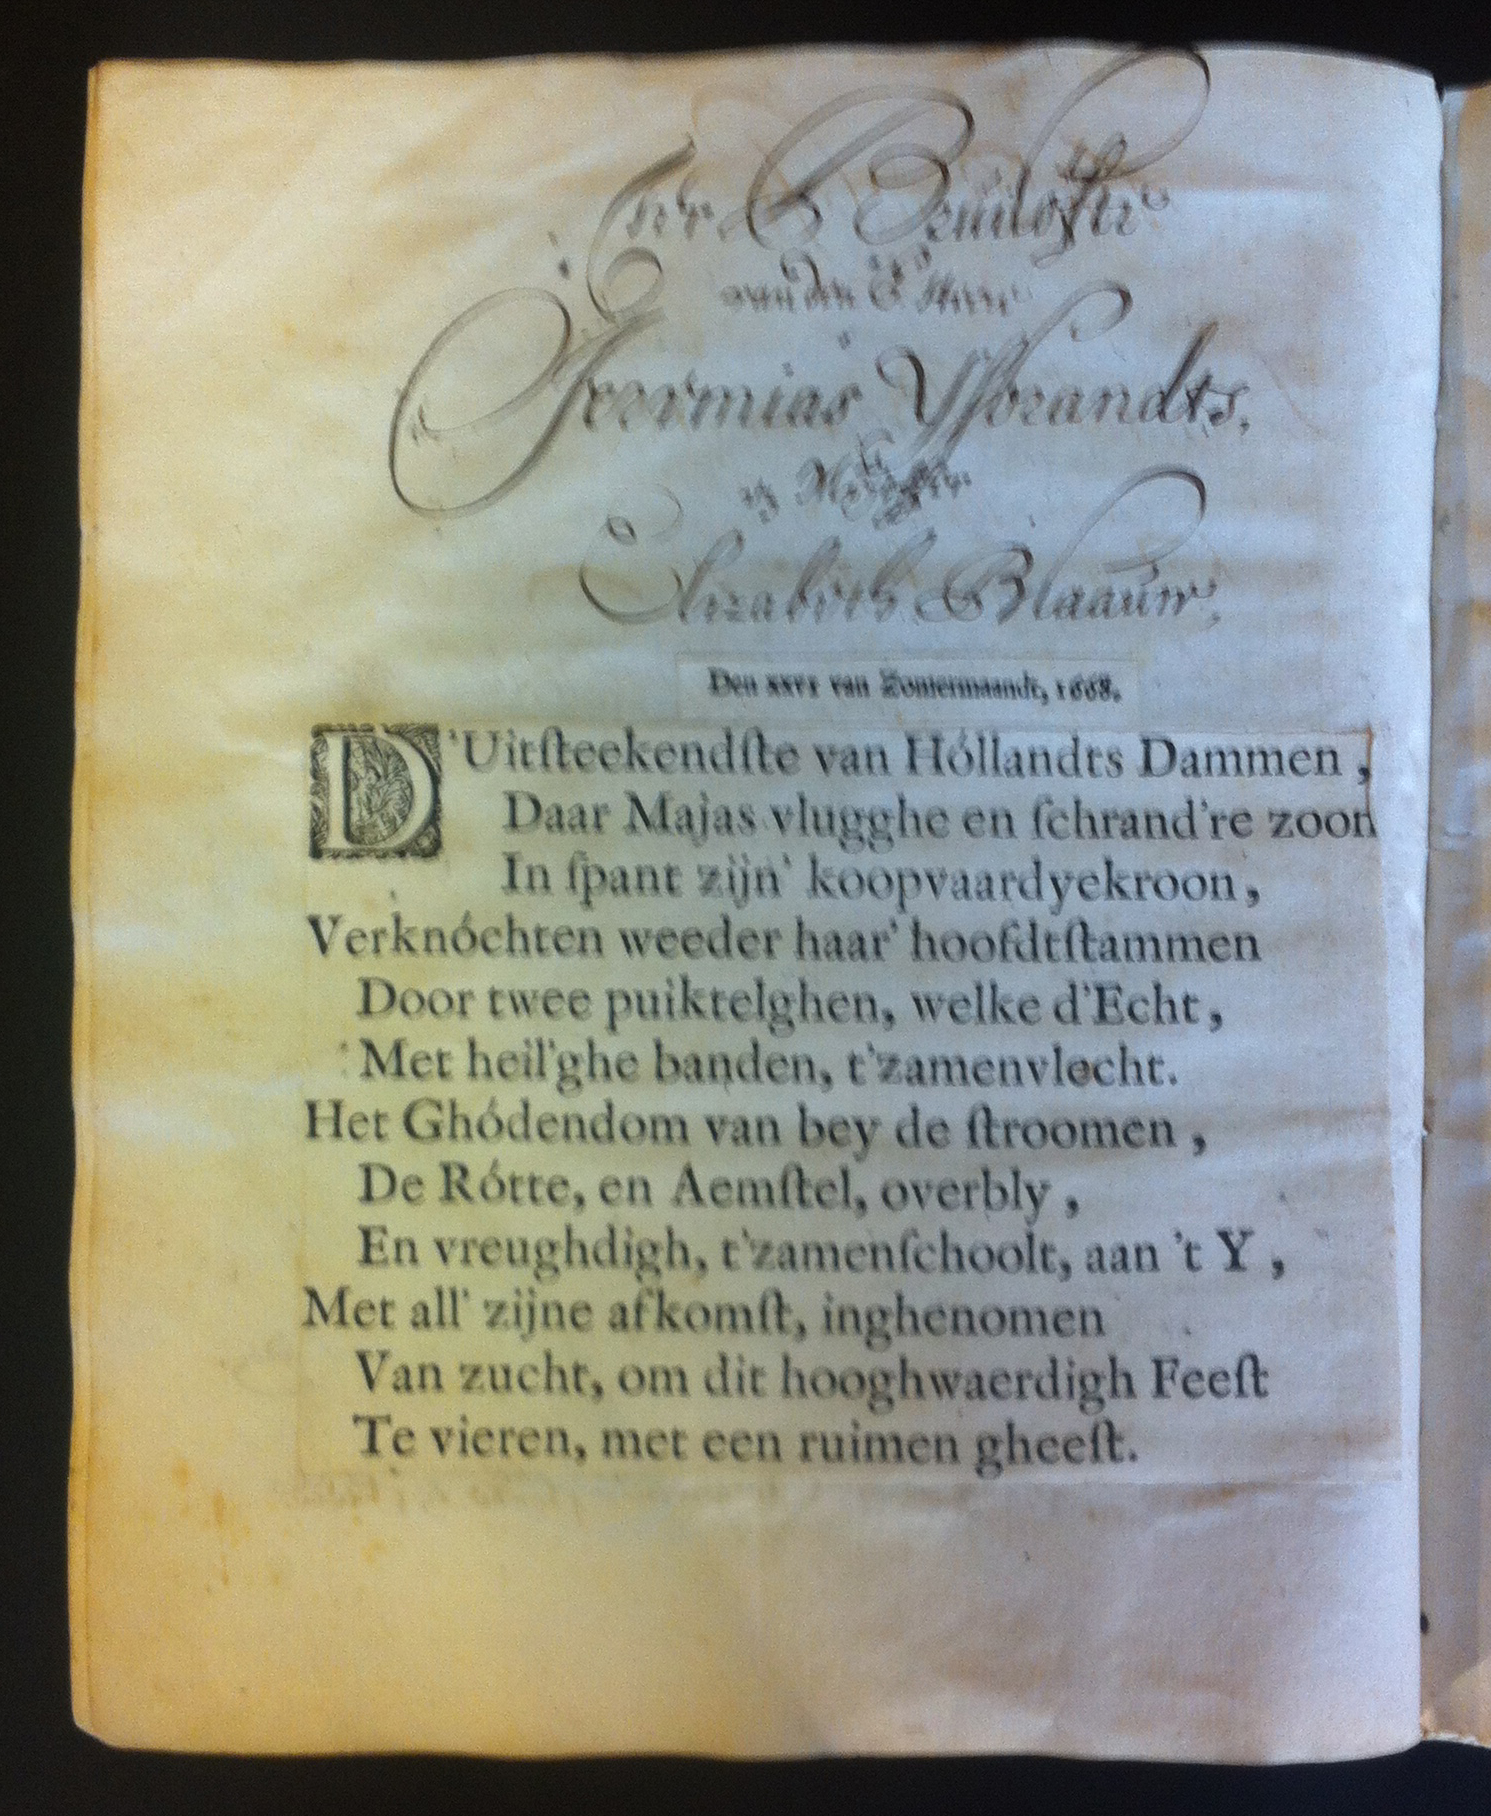 Ter Bruilofte
van den E. Heere
Jeremias Ysbrandts,
Elizabeth Blaauw,
Den XXVI van Zomermaandt, 1668.
D'Uitſteekendſte van Hóllandts Dammen,
Daar Majas vlugghe en ſchrand're zoon
In ſpant zijn' koopvaardyekroon,
Verknóchten weeder haar' hoofdtſtammen
Door twee puiktelghen, welke d'Echt,
Met heil'ghe banden, t'zamenvlecht.
Het Ghódendom van bey de ſtroomen,
De Rótte, en Aemſtel, overbly,
En vreughdigh, t'zamenſchoolt, aan 't Y,
Met all' zijne afkomſt, inghenomen
Van zucht, om dit hooghwaerdigh Feeſt
Te vieren, met een ruimen gheeſt.